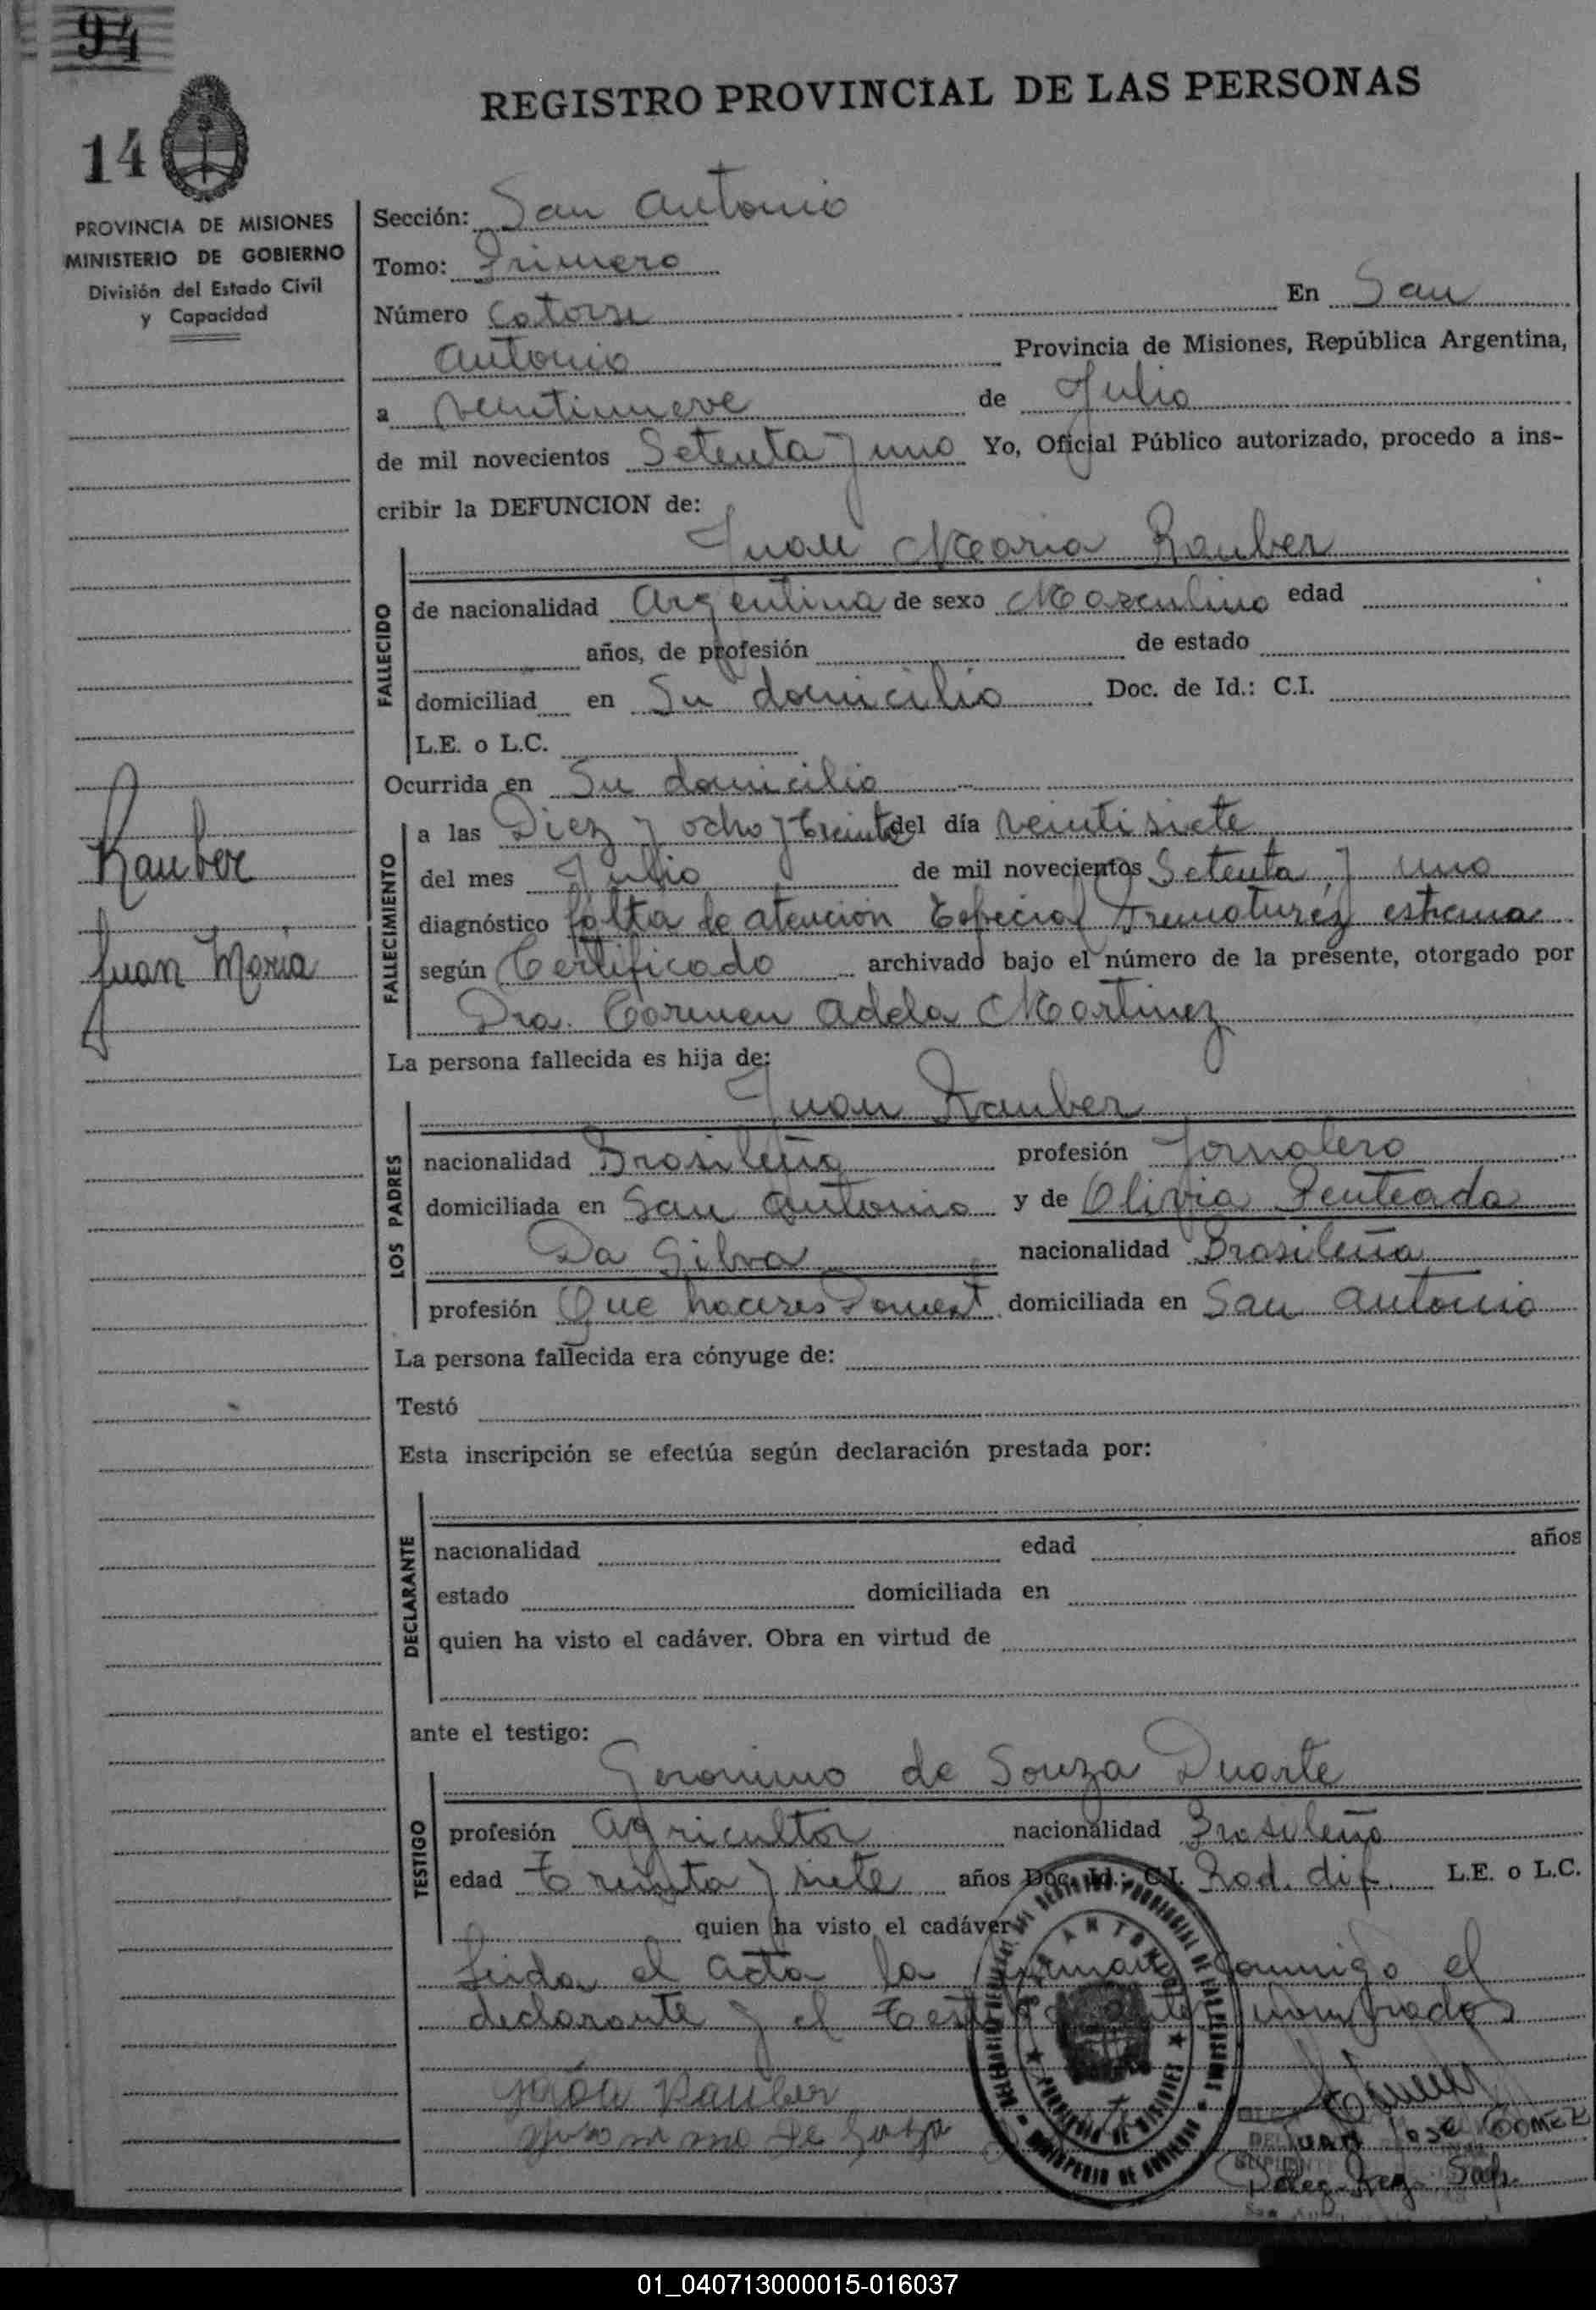 94
14
REGISTRO PROVINCIAL DE LAS PERSONAS
PROVINCIA DE MISIONES
MINISTERIO DE GOBIERNO
División del Estado Civil
y Capacidad
Sección: San Antonio
Tomo: Primero
Número Catorse En San
Antonio Provincia de Misiones, República Argentina,
a veintinueve de Julio
de mil novecientos Setenta y uno Yo, Oficial Público autorizado, procedo a ins-
cribir la DEFUNCION de:
Juan Maria Rauber
FALLECIDO
de nacionalidad Argentina de sexo Masculino edad
años, de profesión de estado
domiciliad en Su domicilio Doc. de Id.: C.I.
L.E. o L.C.
Ocurrida en Su domicilio
Rauber
Juan Maria
FALLECIMIENTO
a las Diez y ocho y treinta del día veinti siete
del mes Julio de mil novecientos Setenta y uno
diagnóstico falta de atención Especial Prematurez estrema
según Certificado archivado bajo el número de la presente, otorgado por
Dra. Carmen Adela Martinez
La persona fallecida es hija de:
Juan Rauber
LOS PADRES
nacionalidad Brasileña profesión Jornalero
domiciliada en San Antonio y de Olivia Penteada
Da Silva nacionalidad Brasileña
profesión Que haceres Domest. domiciliada en San Antonio
La persona fallecida era cónyuge de:
Testó
Esta inscripción se efectúa según declaración prestada por:
DECLARANTE
nacionalidad edad años
estado domiciliada en
quien ha visto el cadáver. Obra en virtud de
ante el testigo:
Geronimo de Souza Duarte
TESTIGO
profesión Agricultor nacionalidad Brasileño
edad Treinta y siete años Doc. Id.: C.I. Rad. dif. L.E. o L.C.
quien ha visto el cadáver
Leida el acta la firman conmigo el
declarante y el testigo antes nombrados
Rauber
de Suza
JUAN JOSE GOMEZ
Deleg. Reg.
MINISTERIO DE GOBIERNO
PROVINCIA DE MISIONES
01_040713000015-016037